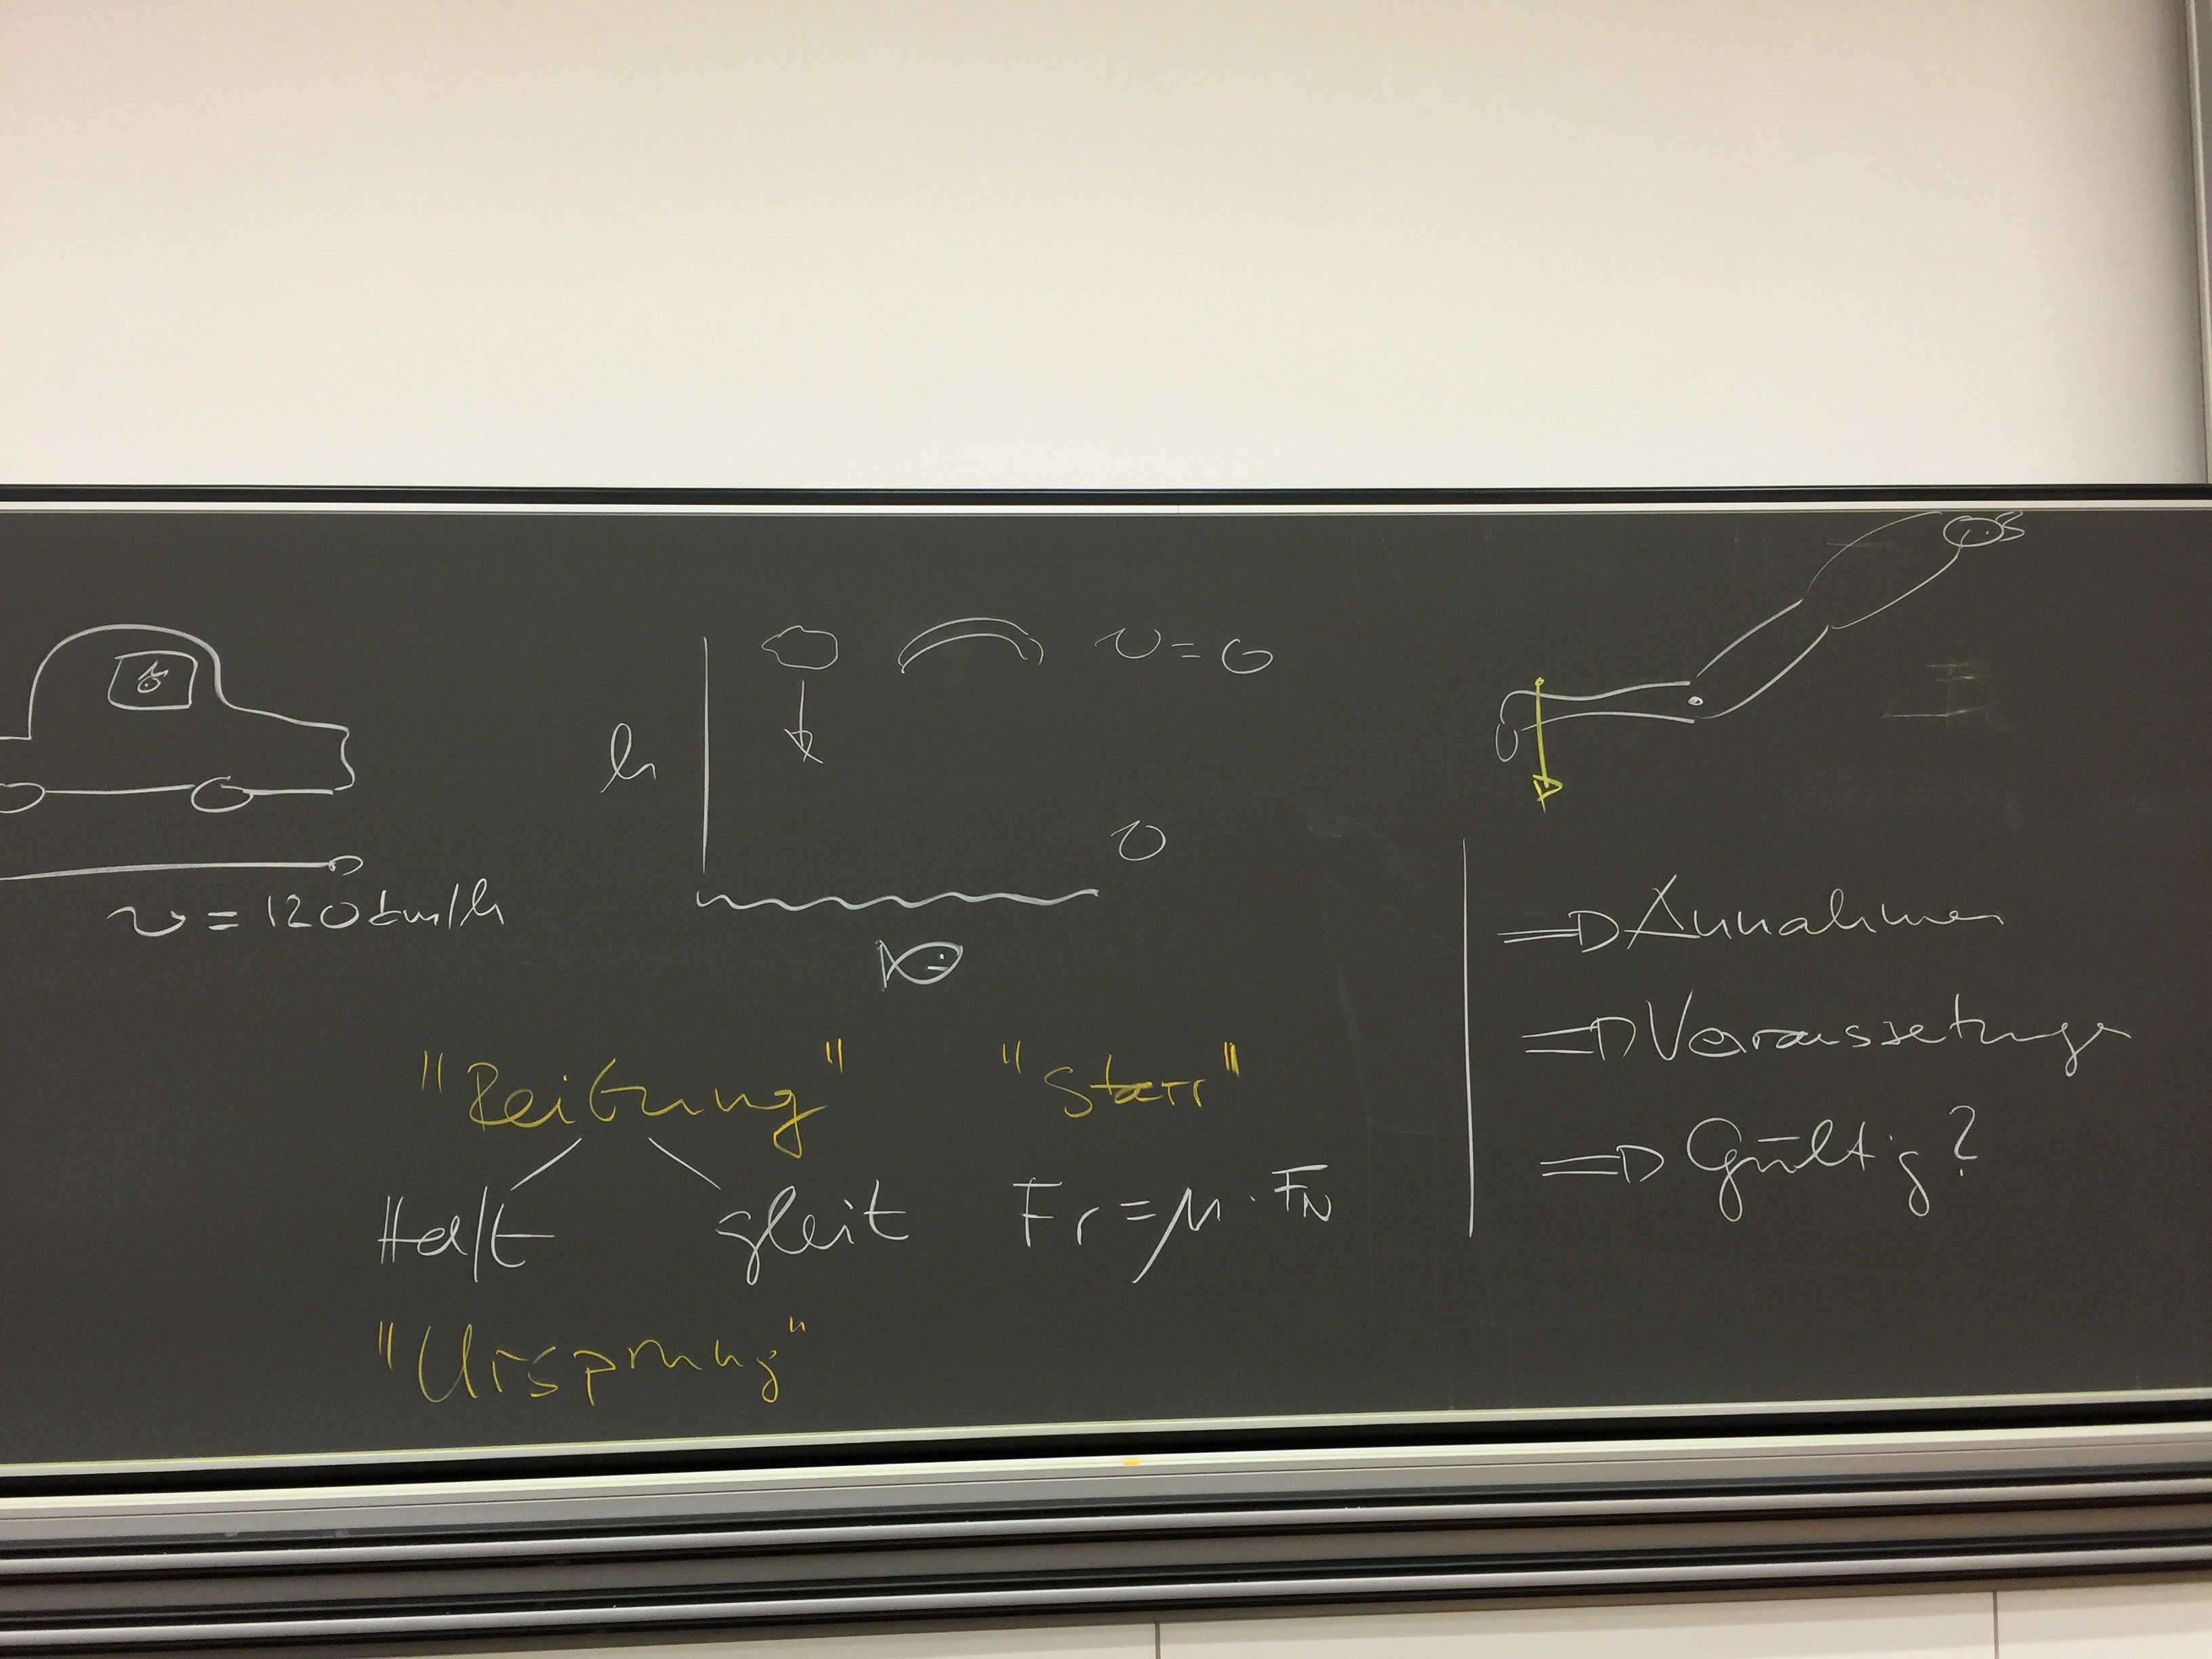 v = 120 km/h
h
v = 0
v
"Reibung"
Haft gleit
"Starr"
Fr = μ · FN
"Ursprung"
⇒ Annahmen
⇒ Voraussetzungen
⇒ Gültig?